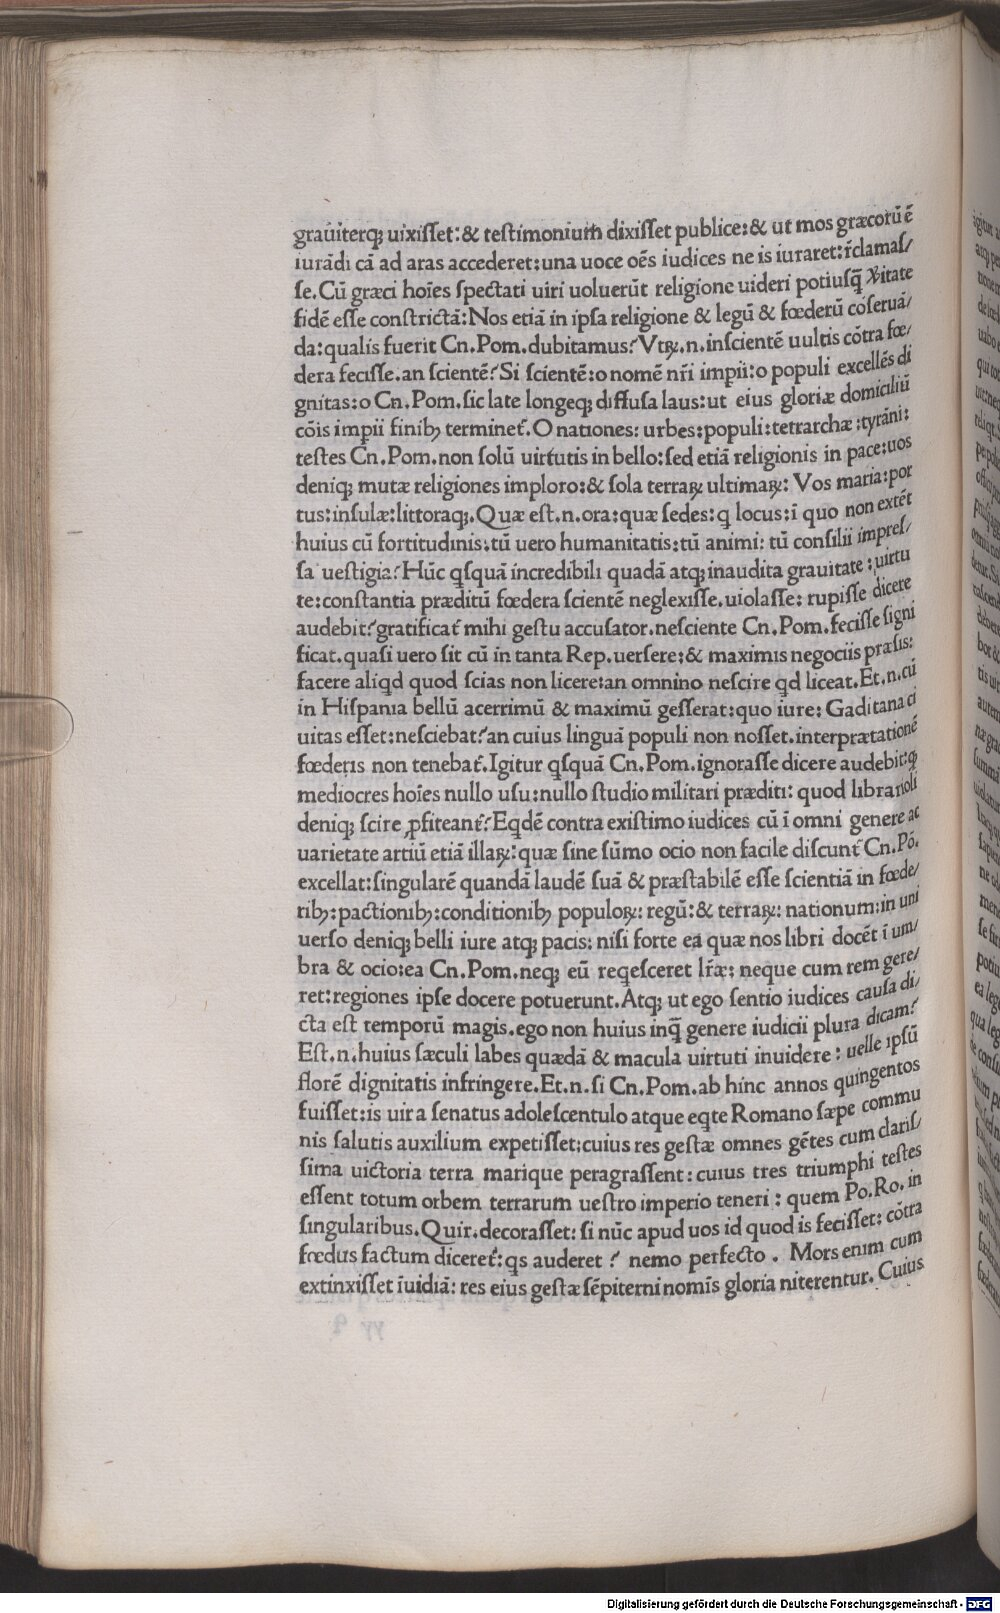 grauiterqꝫ uixiſſet: & teſtimonium dixiſſet publice: & ut mos græcorū ē
iurādi cā ad aras accederet: una uoce oēs iudices ne is iuraret: r̄clamaſ/
ſe. Cū græci hoīes ſpectati uiri uoluerūt religione uideri potiuſq̄ ꝟitate
fidē eſſe conſtrictā: Nos etiā in ipſa religione & legū & fœderū cōſeruā/
da: qualis fuerit Cn. Pom. dubitamus? Vtꝝ. n. inſcientē uultis cōtra fœ/
dera feciſſe. an ſcientē? Si ſcientē: o nomē nr̄i impii: o populi excellēs di
gnitas: o Cn. Pom. ſic late longeqꝫ diffuſa laus: ut eius gloriæ domiciliū
cōis impii finibꝫ terminet᷑. O nationes: urbes: populi: tetrarchæ: tyrāni:
teſtes Cn. Pom. non ſolū uirtutis in bello: ſed etiā religionis in pace: uos
deniqꝫ mutæ religiones imploro: & ſola terraꝝ ultimaꝝ: Vos maria: por
tus: inſulæ: littoraqꝫ. Quæ eſt. n. ora: quæ ſedes: q locus: ī quo non extēt
huius cū fortitudinis: tū uero humanitatis: tū animi: tū conſilii impreſ/
ſa ueſtigia? Hūc qſquā incredibili quadā atqꝫ inaudita grauitate: uirtu
te: conſtantia præditū fœdera ſcientē neglexiſſe. uiolaſſe: rupiſſe dicere
audebit? gratificat᷑ mihi geſtu accuſator. neſciente Cn. Pom. feciſſe ſigni
ficat. quaſi uero ſit cū in tanta Rep. uerſere: & maximis negociis præſis:
facere aliqd quod ſcias non licere: an omnino neſcire qd liceat. Et. n. cū
in Hiſpania bellū acerrimū & maximū geſſerat: quo iure: Gaditana ci
uitas eſſet: neſciebat? an cuius linguā populi non noſſet. interprætationē
fœderis non tenebat᷑. Igitur qſquā Cn. Pom. ignoraſſe dicere audebit: qꝫ
mediocres hoīes nullo uſu: nullo ſtudio militari præditi: quod librarioli
deniqꝫ ſcire ꝓfiteant᷑? Eqdē contra exiſtimo iudices cū ī omni genere ac
uarietate artiū etiā illaꝝ: quæ ſine ſūmo ocio non facile diſcunt᷑ Cn. Pō.
excellat: ſingularē quandā laudē ſuā & præſtabilē eſſe ſcientiā in fœde/
ribꝫ: pactionibꝫ: conditionibꝫ populoꝝ: regū: & terraꝝ: nationum: in uni
uerſo deniqꝫ belli iure atqꝫ pacis: niſi forte ea quæ nos libri docēt ī um/
bra & ocio: ea Cn. Pom. neqꝫ eū reqeſceret lr̄æ: neque cum rem gere/
ret: regiones ipſe docere potuerunt. Atqꝫ ut ego ſentio iudices cauſa di/
cta eſt temporū magis. ego non huius inq̄ genere iudicii plura dicam?
Eſt. n. huius ſæculi labes quædā & macula uirtuti inuidere: uelle ipſū
florē dignitatis infringere. Et. n. ſi Cn. Pom. ab hinc annos quingentos
fuiſſet: is uir a ſenatus adoleſcentulo atque eqte Romano ſæpe commu
nis ſalutis auxilium expetiſſet: cuius res geſtæ omnes gētes cum clariſ/
ſima uictoria terra marique peragraſſent: cuius tres triumphi teſtes
eſſent totum orbem terrarum ueſtro imperio teneri: quem Po. Ro. in
ſingularibus. Quir. decoraſſet: ſi nūc apud uos id quod is feciſſet: cōtra
fœdus factum diceret᷑: qs auderet? nemo perfecto. Mors enim cum
extinxiſſet īuidiā: res eius geſtæ ſēpiterni nomīs gloria niterentur. Cuius
Digitalisierung gefördert durch die Deutsche Forschungsgemeinschaft - DFG